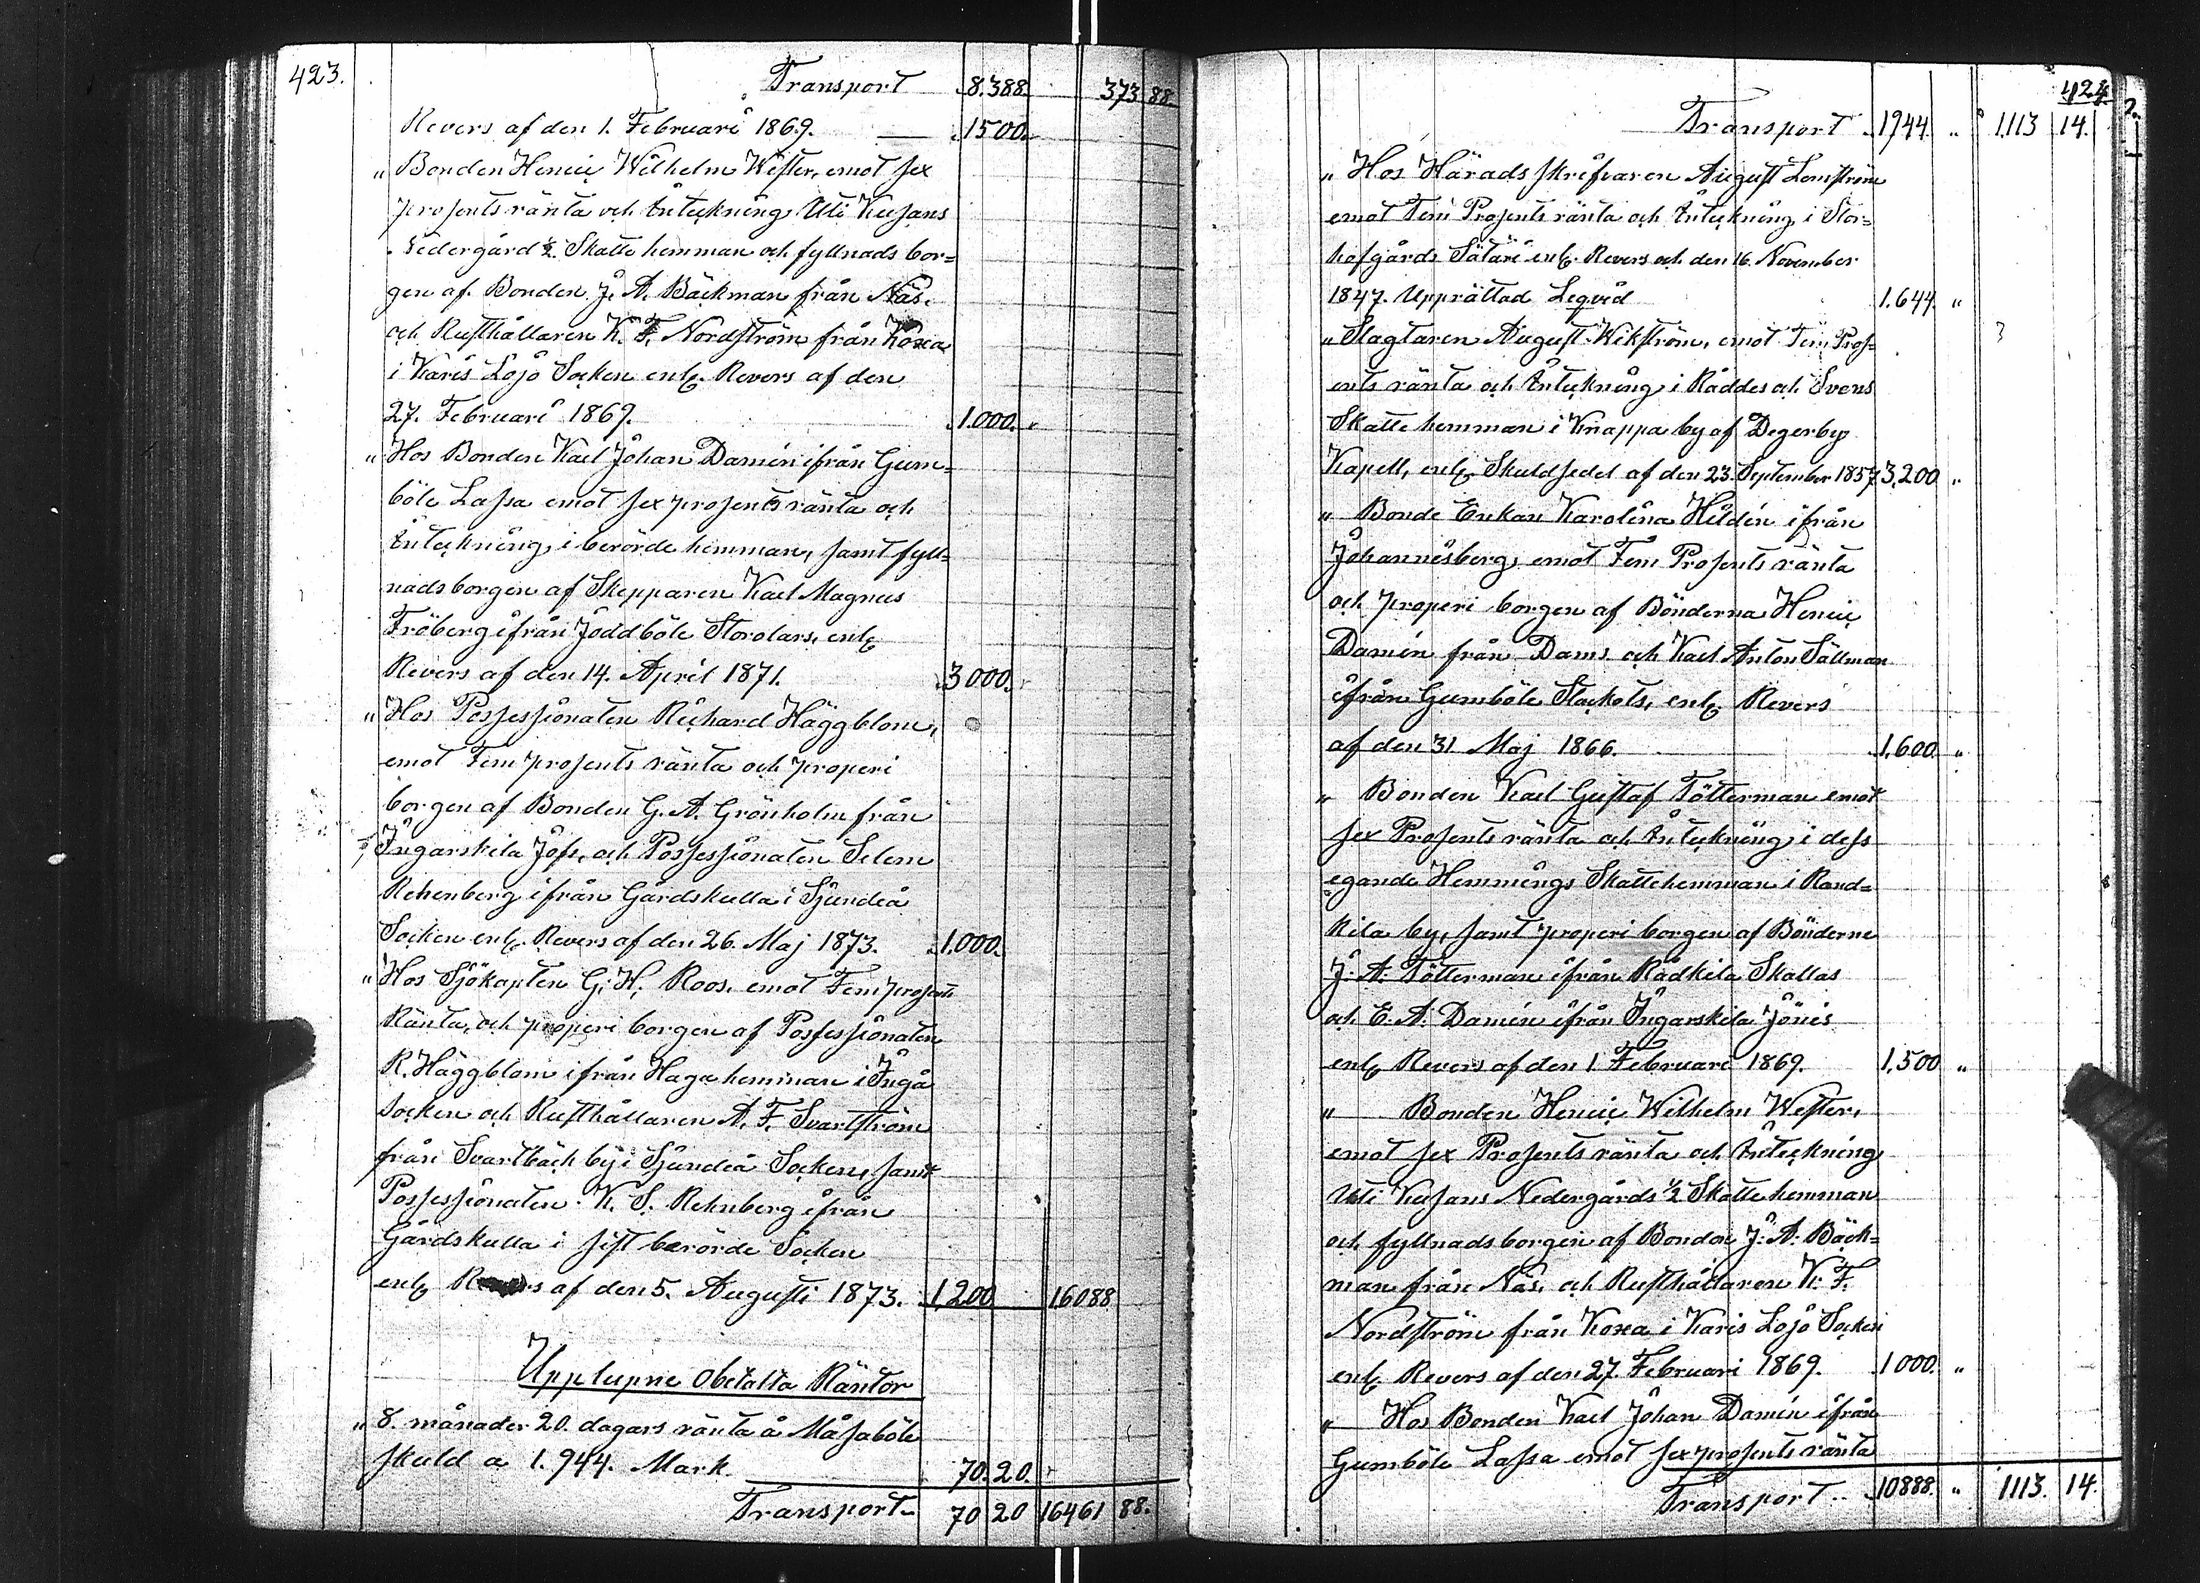 423.
Transport 8.388. 373 88
Revers af den 1. Februari 1869. 1500.
" Bonden Henric Wilhelm Wester, emot sex
prosents ränta och Inteckning Uti Kusans
Nedergård ½ Skatte hemman och fyllnads bor=
gen af Bonden J. A. Bäckman från Näs.
och Rusthållaren K. F. Nordström från Koxa
i Karis Lojo Socken enl. Revers af den
27. Februari 1869. 1.000. "
" Hos Bonden Karl Johan Damén ifrån Gum=
böle Lassa emot sex prosents ränta och
Inteckning i berörde hemman, samt fyll=
nadsborgen af Skepparen Karl Magnus
Fröberg ifrån Joddböle Storolars, enl.
Revers af den 14. April 1871. 3000.
" Hos Possessionaten Richard Häggblom,
emot Fem prosents ränta och properi
borgen af Bonden G. A. Grönholm från
Ingarskila Jofs, och Possessionaten Selem
Rehenberg ifrån Gårdskulla i Sjundeå
Socken enl. Revers af den 26. Maj 1873. 1.000.
" Hos Sjökapten G. H. Roos, emot Fem prosents
Ränta, och properi borgen af Possessionaten
R. Häggblom ifrån Haga hemman i Ingå
Socken och Rusthållaren A. F. Svartström
från Svartbäck by i Sjundeå Socken, samt
Possessionaten K. S. Rehnberg ifrån
Gårdskulla i sist berörde Socken
enl. Revers af den 5. Augusti 1873. 1200 16088
Upplupne Obetalta Räntor
" 8. månader 20. dagars ränta å Måsaböle
skuld a 1.944. Mark. 70. 20.
Transport 70 20 16461 88.
424
Transport 1944. " 1.113 14.
" Hos Häradsskrifvaren August Lemström
emot Fem Prosents ränta och Inteckning i Stor=
hofgårds Säteri enl. Revers och den 16. November
1847. Upprättad Leqvid 1.644. "
" Slagtaren August Wikström, emot Fem Pros=
ents ränta och Inteckning i Räddes och Svens
Skatte hemman i Knappa by af Degerby
Kapell, enl. Skuldsedel af den 23. September 1857 3,200 "
" Bonde Enkan Karolina Hildén ifrån
Johannesberg, emot Fem Prosents ränta
och properi borgen af Bönderna Henric
Damén från Dams och Karl Anton Sällman
ifrån Gumböle Stockots, enl. Revers
af den 31 Maj 1866. 1,600. "
" Bonden Karl Gustaf Fötterman emot
sex Prosents ränta och Inteckning i dess
egande Hemmings Skattehemman i Rand=
kila by, samt properi borgen af Bönderne
J. A. Fötterman ifrån Rådkila Skallas
och E. A. Damén ifrån Ingarskila Jönis
enl. Revers af den 1. Februari 1869. 1,500 "
" Bonden Henric Wilhelm Wester,
emot sex Prosents ränta och Inteckning
Uti Kusans Nedergårds ½ Skattehemman
och fyllnadsborgen af Bonden J. A. Bäck=
man från Näs, och Rusthållaren K. F.
Nordström från Koxa i Karis Lojo Socken
enl. Revers af den 27. Februari 1869. 1000. "
" Hos Bonden Karl Johan Damén ifrån
Gumböle Lassa emot sex prosents ränta
Transport 10888. " 1113. 14.